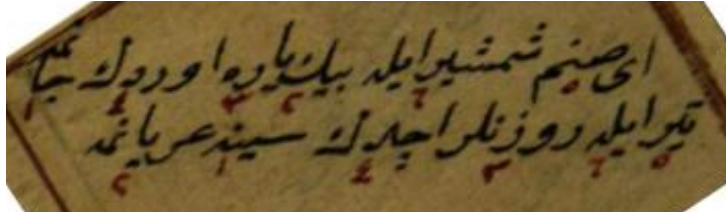 ای صنم شمشیر ایله بیك یاره اوردك جانمه
تیر ایله روزنلر اچدك سینه عریانمه